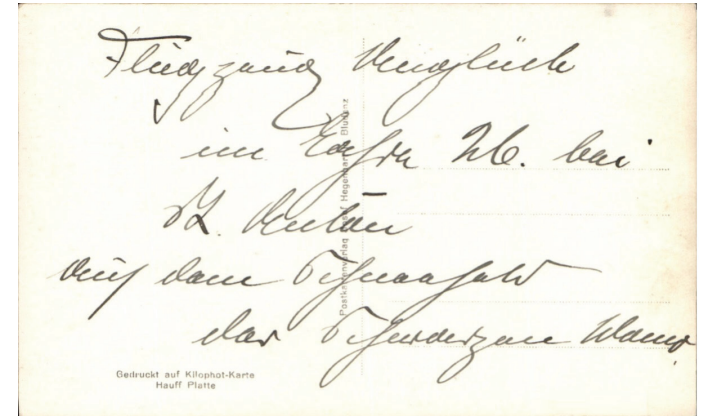 Flugzeug Unglück
im Jahre 26. bei
St. Anton
auf dem Schneefeld
der Schwarzen Wand.
Postkartenverlag Josef Bludenz
Gedruckt auf Kilophot-Karte
Hauff Platte